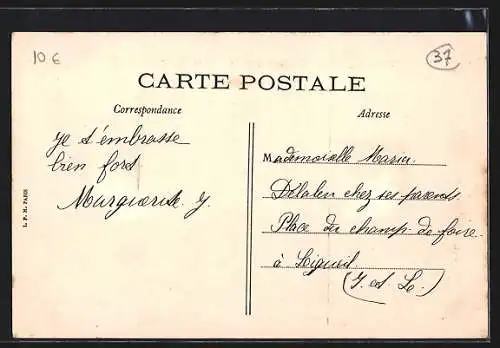 10 €
37
CARTE POSTALE
Correspondance
Adresse
Je t'embrasse
bien fort
Marguerite. J.
Mademoiselle Maria
chez ses parents
Place du champ de foire
à Ligueil
(I. et L.)
L. P. M. PARIS